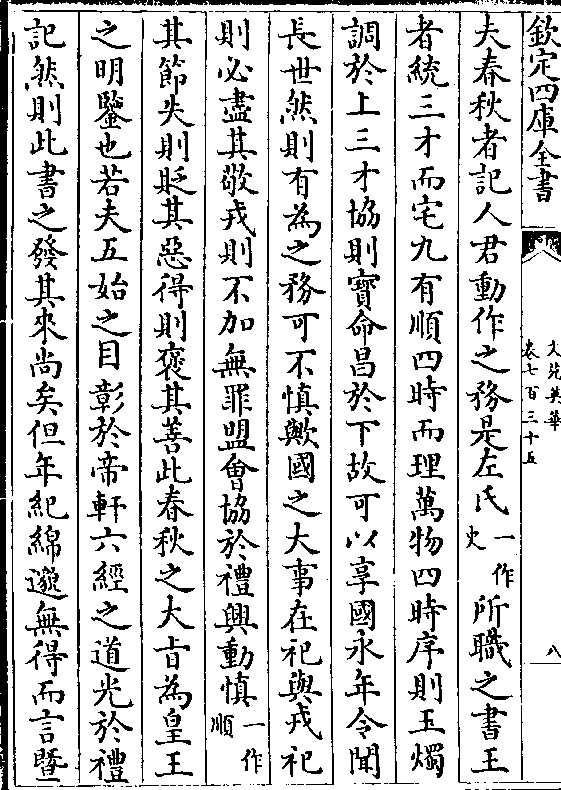 欽定四庫全書
文苑英華
卷七百三十五
八
夫春秋者記人君動作之務是左氏一作史所職之書王
者統三才而宅九有順四時而理萬物四時序則玉燭
調於上三才協則寶命昌於下故可以享國永年令聞
長世然則有為之務可不慎歟國之大事在祀與戎祀
則必盡其敬戎則不加無罪盟會協於禮興動慎一作順
其節失則貶其惡得則褒其善此春秋之大旨為皇王
之明鑒也若夫五始之目彰於帝軒六經之道光於禮
記然則此書之發其來尚矣但年紀綿邈無得而言暨